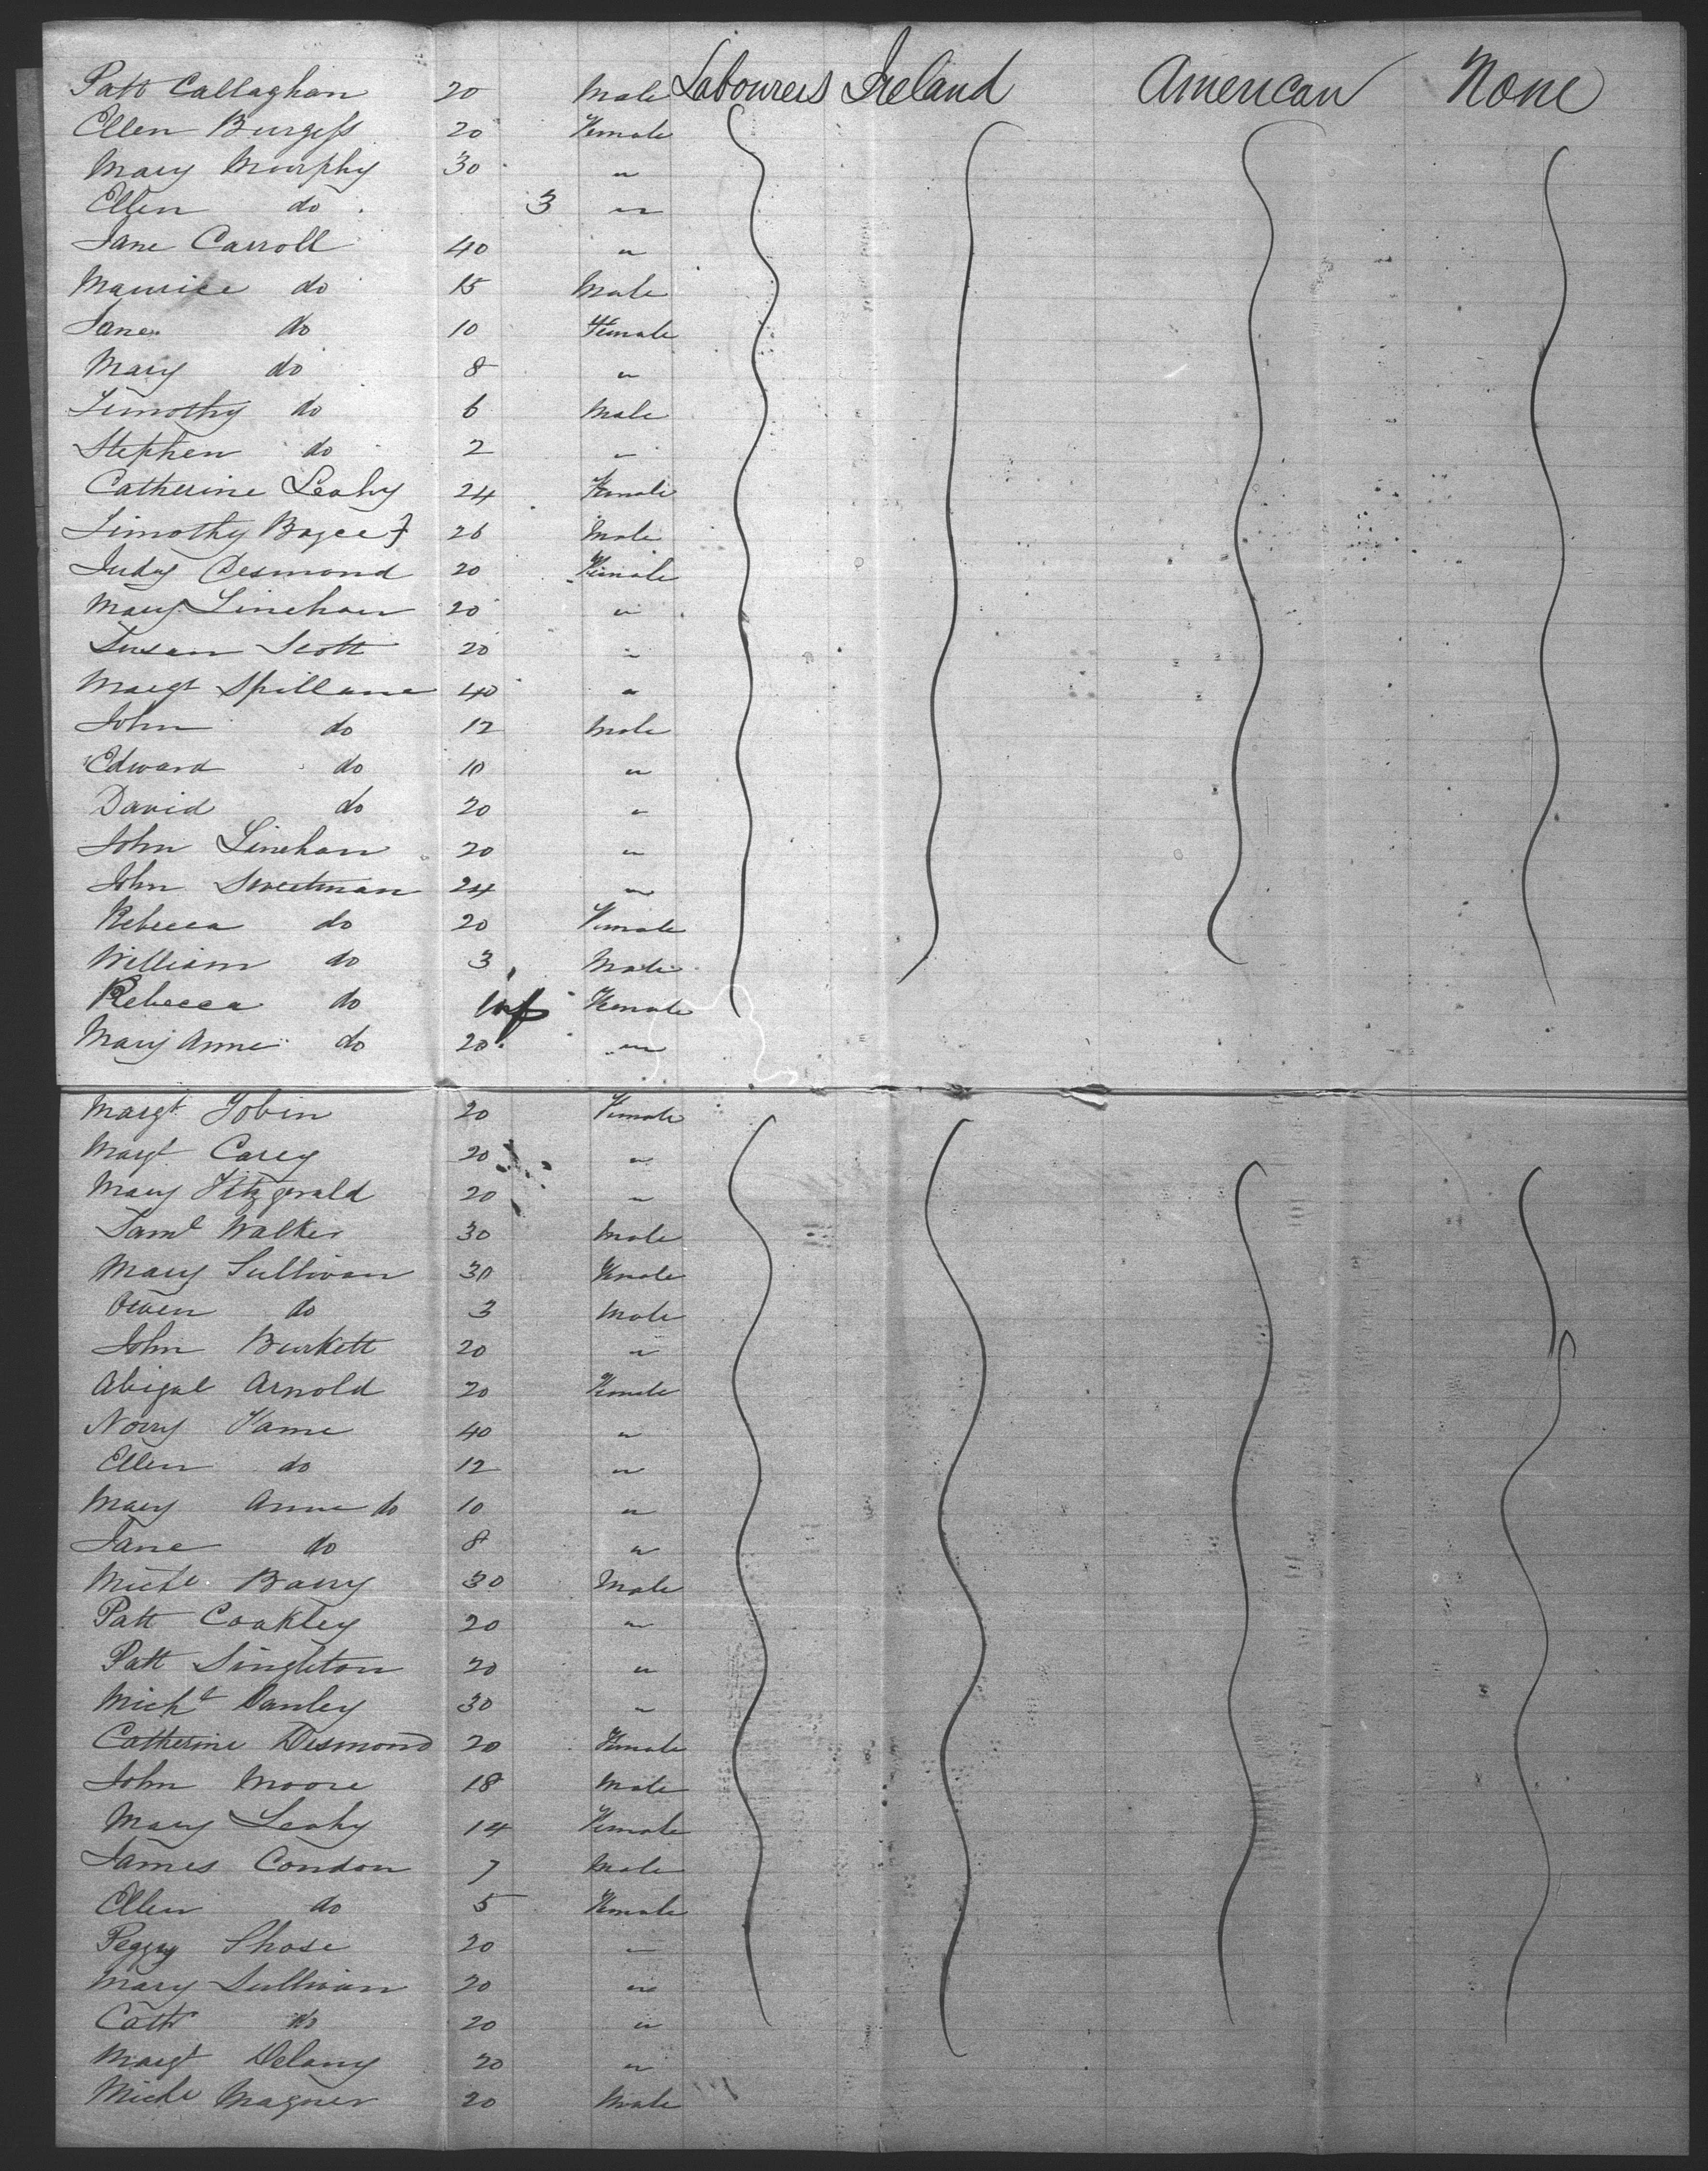 Patt Callaghan 20 Male Labourers Ireland American None
Ellen Burgess 20 Female
Mary Murphy 30 "
Ellen do 3 "
Jane Carroll 40 "
Maurice do 15 Male
Jane do 10 Female
Mary do 8 "
Timothy do 6 Male
Stephen do 2 "
Catherine Leahy 24 Female
Timothy 26 Male
Judy Desmond 20 Female
Mary Linehan 20 "
Susan Scott 20 "
Margt Spillane 40 "
John do 12 Male
Edward do 10 "
David do 20 "
John Linehan 20 "
John Sweetman 24 "
Rebecca do 20 Female
William do 3 Male
Rebecca do Inf Female
Mary Anne do 20 "
Margt Tobin 20 Female
Margt Carey 20 "
Mary Fitzgerald 20 "
Saml Walker 30 Male
Mary Sullivan 30 Female
Owen do 3 Male
John Burkett 20 "
Abigal Arnold 20 Female
Norry 40 "
Ellen do 12 "
Mary Anne do 10 "
Jane do 8 "
Michl Barry 30 Male
Patt Coakley 20 "
Patt Singleton 20 "
Michl Danley 30 "
Catherine Desmond 20 Female
John Moore 18 Male
Mary Leahy 14 Female
James Condon 7 Male
Ellen do 5 Female
Peggy 20 "
Mary Sullivan 20 "
Cath do 20 "
Margt Delany 20 "
Michl Magner 20 Male